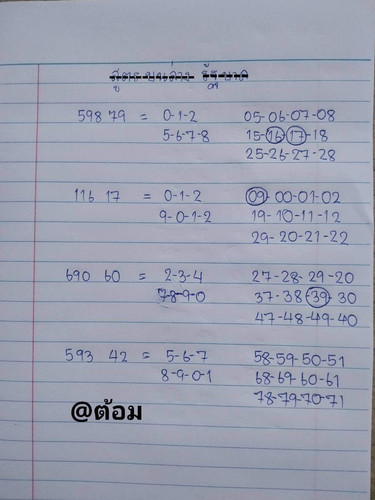 สูตร บนล่าง รัฐบาล
598 79 = 0-1-2 05-06-07-08
5-6-7-8 15-16-17-18
25-26-27-28
116 17 = 0-1-2 09-00-01-02
9-0-1-2 19-10-11-12
29-20-21-22
690 60 = 2-3-4 27-28-29-20
78-9-0 37-38-39-30
47-48-49-40
593 42 = 5-6-7 58-59-50-51
8-9-0-1 68-69-60-61
78-79-70-71
@ต้อม